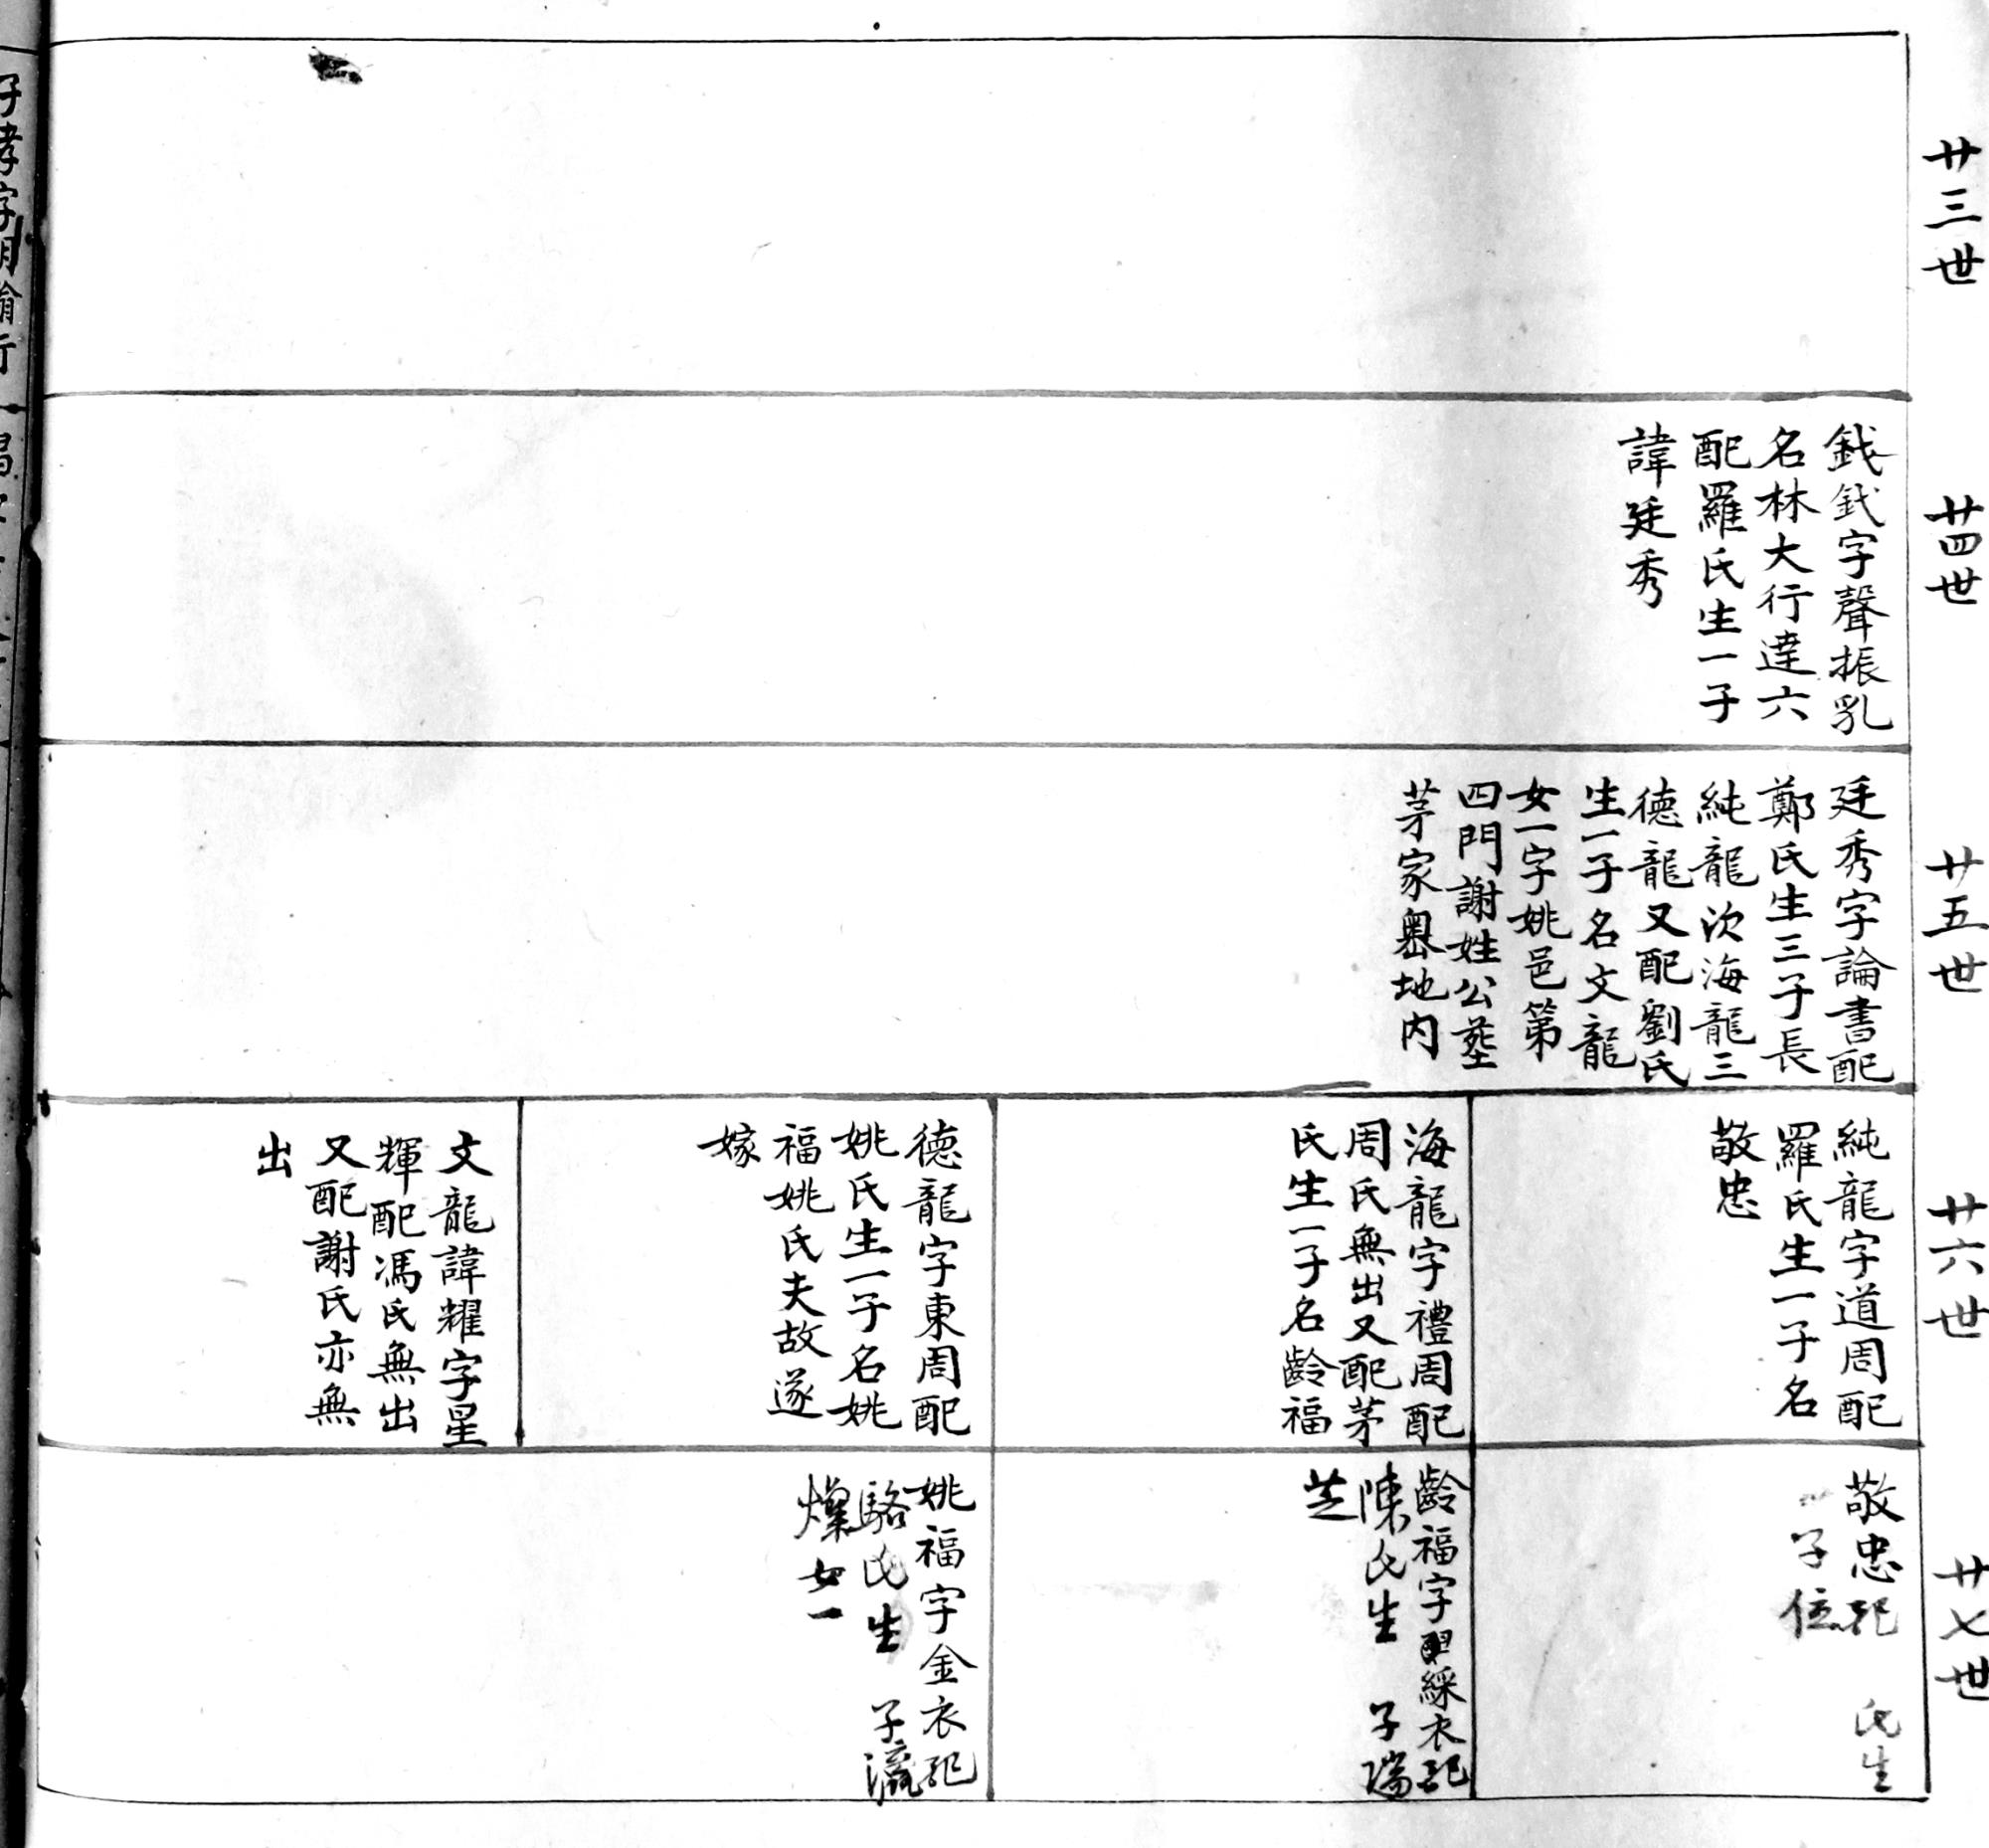 廿三世
廿四世
鉞鉞字聲振乳
名林大行達六
配羅氏生一子
諱廷秀
廿五世
廷秀字論書配
鄭氏生三子長
純龍次海龍三
德龍又配劉氏
生一子名文龍
女一字姚邑第
四門謝姓公塟
茅家奧地內
廿六世
純龍字道周配
羅氏生一子名
敬忠
海龍字禮周配
周氏無出又配茅
氏生一子名齡福
德龍字東周配
姚氏生一子名姚
福姚氏夫故遂
嫁
文龍諱耀字星
輝配馮氏無出
又配謝氏亦無
出
廿七世
敬忠配 氏生
一子位
齡福字綵衣配
陳氏生 子瑞
芝
姚福字金衣配
駱氏生 子
燦女一